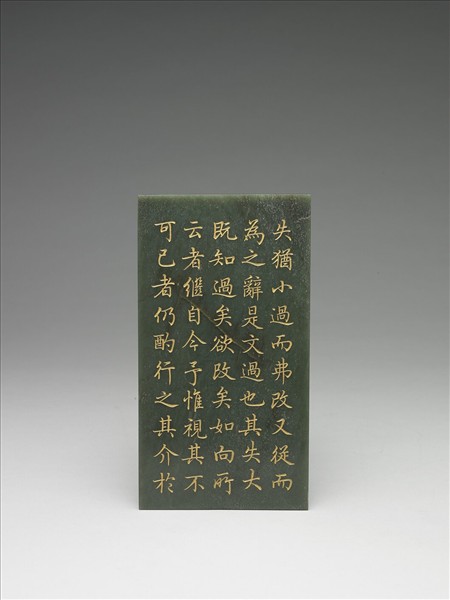 失猶小過而弗改又從而
為之辭是文過也其失大
既知過矣欲改矣如向所
云者繼自今予惟視其不
可已者仍酌行之其介於